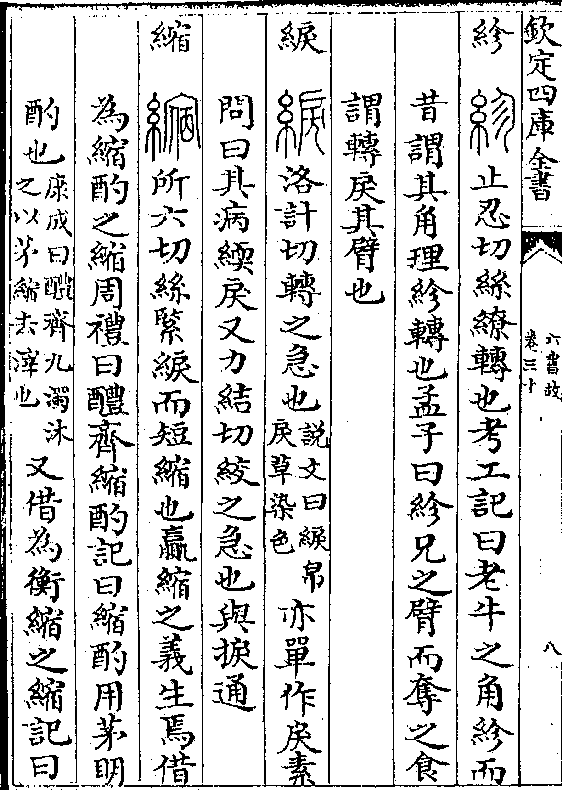 欽定四庫全書
六書故
卷三十
八
紾 紾 止忍切絲繚轉也考工記曰老牛之角紾而
昔謂其角理紾轉也孟子曰紾兄之臂而奪之食
謂轉戾其臂也
綟 綟 洛計切轉之急也說文曰綟帛戾草染色亦單作戾素
問曰其病緛戾又力結切絞之急也與捩通
縮 縮 所六切絲緊綟而短縮也贏縮之義生焉借
為縮酌之縮周禮曰醴齊縮酌記曰縮酌用茅明
酌也康成曰醴齊尤濁沐之以茅縮去滓也又借為衡縮之縮記曰